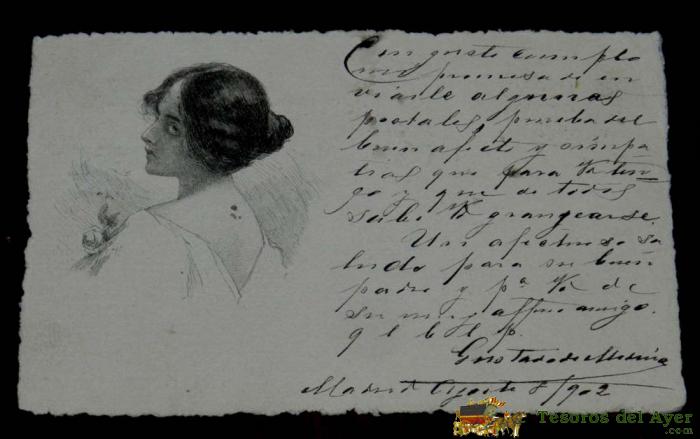 Con gusto cumplo
mi promesa de en
viarle algunas
postales, prueba del
buen afecto y simpa
tias que para Vd ten
go y que de todos
sabe Vd grangearse.
Un afectuoso sa
ludo para su buen
padre y pª Vd de
su muy affmo amigo.
q l b l p.
Gustavo de
Madrid Agosto 8/902
Tesoros del Ayer
.com